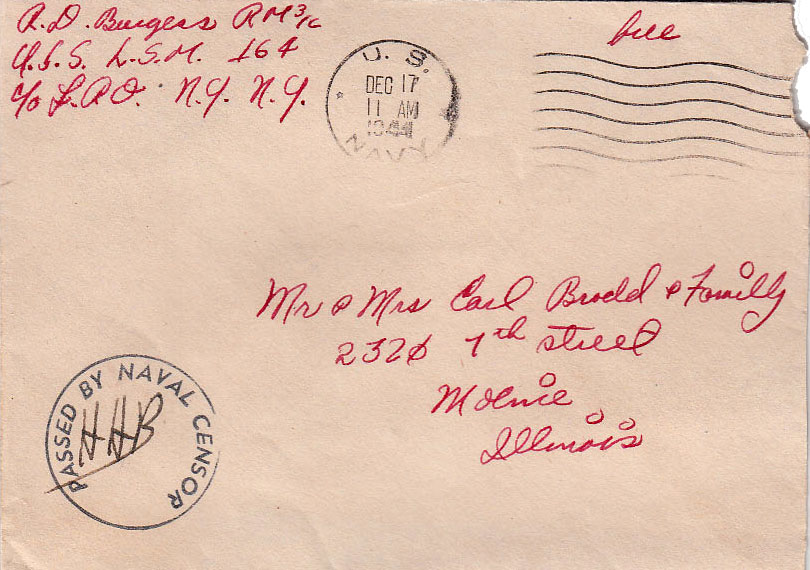 R.D. Burgess RM3/c
U.S.S. L.S.M. 164
c/o F.P.O. N.Y. N.Y.
U. S.
DEC 17
11 AM
1944
NAVY
free
Mr & Mrs Carl Brodd & Familly
2320 7th street
Molnie
Illinois
PASSED BY NAVAL CENSOR
HHB